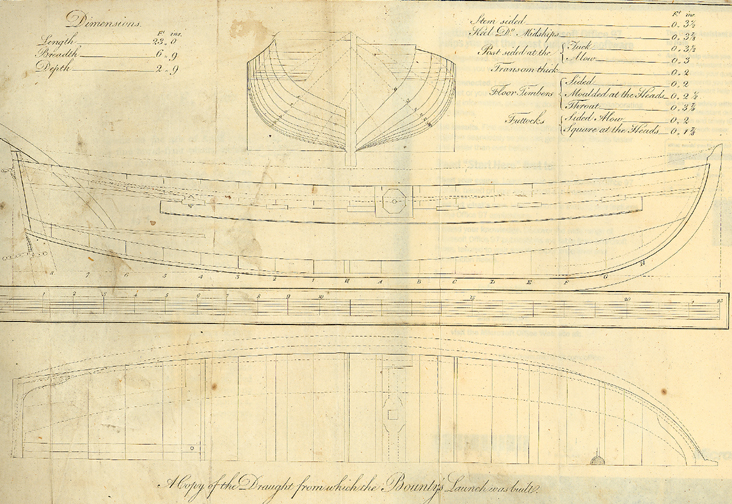 Dimensions.
Ft ins.
Length 23.0
Breadth 6.9
Depth 2.9
Ft ins
Stem sided 0.3½
Keel Do Midships 0.3¾
Post sided at the { Tuck 0.3½
Alow 0.3
Transom thick 0.2
Floor Timbers { Sided 0.2
Moulded at the Heads 0.2¼
Throat 0.3¾
Futtocks { Sided Alow 0.2
Square at the Heads 0.1¾
A B C D E F G H
A Copy of the Draught from which the Bounty's Launch was built.